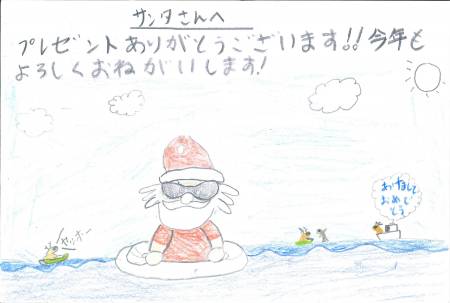 サンタさんへ
プレゼントありがとうございます!!今年も
よろしくおねがいします!
あけまして
おめで
とう
ヤッホー